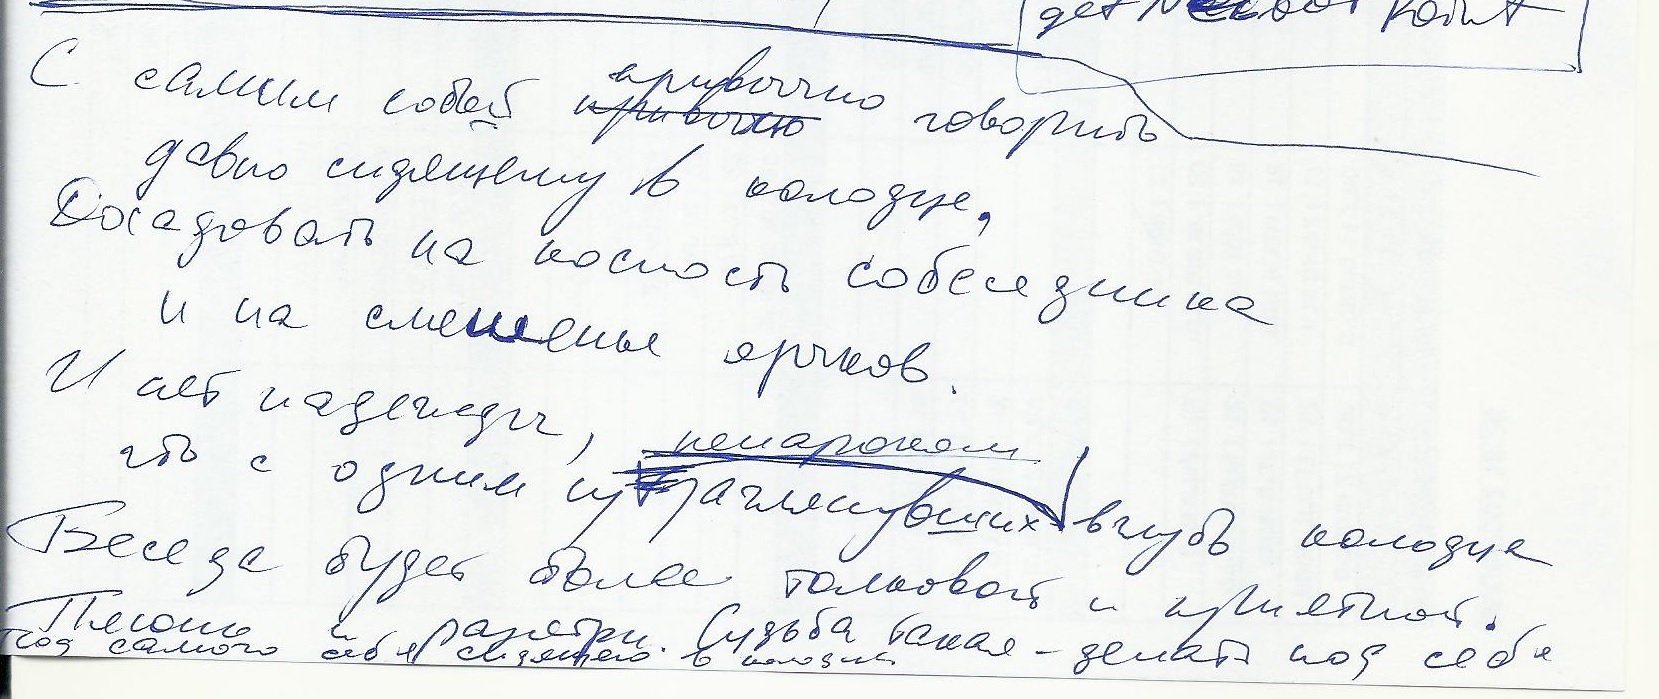 get Neckar Point
С самим собой привычно привычно говорить
давно сидящему в колодце,
Досадовать на косность собеседника
и на смешенье ярыков.
И нет надежды, ненароком
что с одним из заглянувших вглубь колодца
Беседа будет более толковой и приятной.
Плюнь и разотри. Судьба такая - делать под себя
под самого себя сидящего в колодце